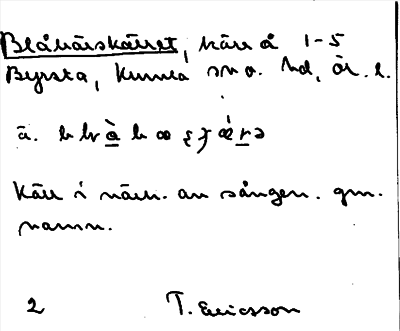 Blåbärskärret, kärr å 1-5
Byrsta, Kumla sn o. hd, Ör. l.
ä.
Kärr i närh. av sången. gm.
namn.
2 T. Ericsson